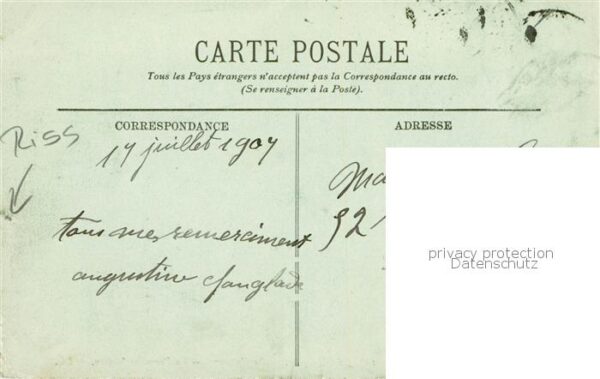 CARTE POSTALE
Tous les Pays étrangers n'acceptent pas la Correspondance au recto.
(Se renseigner à la Poste).
CORRESPONDANCE
ADRESSE
Riss
17 juillet 1907
tous mes remerciment
augustine
Ma
92
privacy protection
Datenschutz